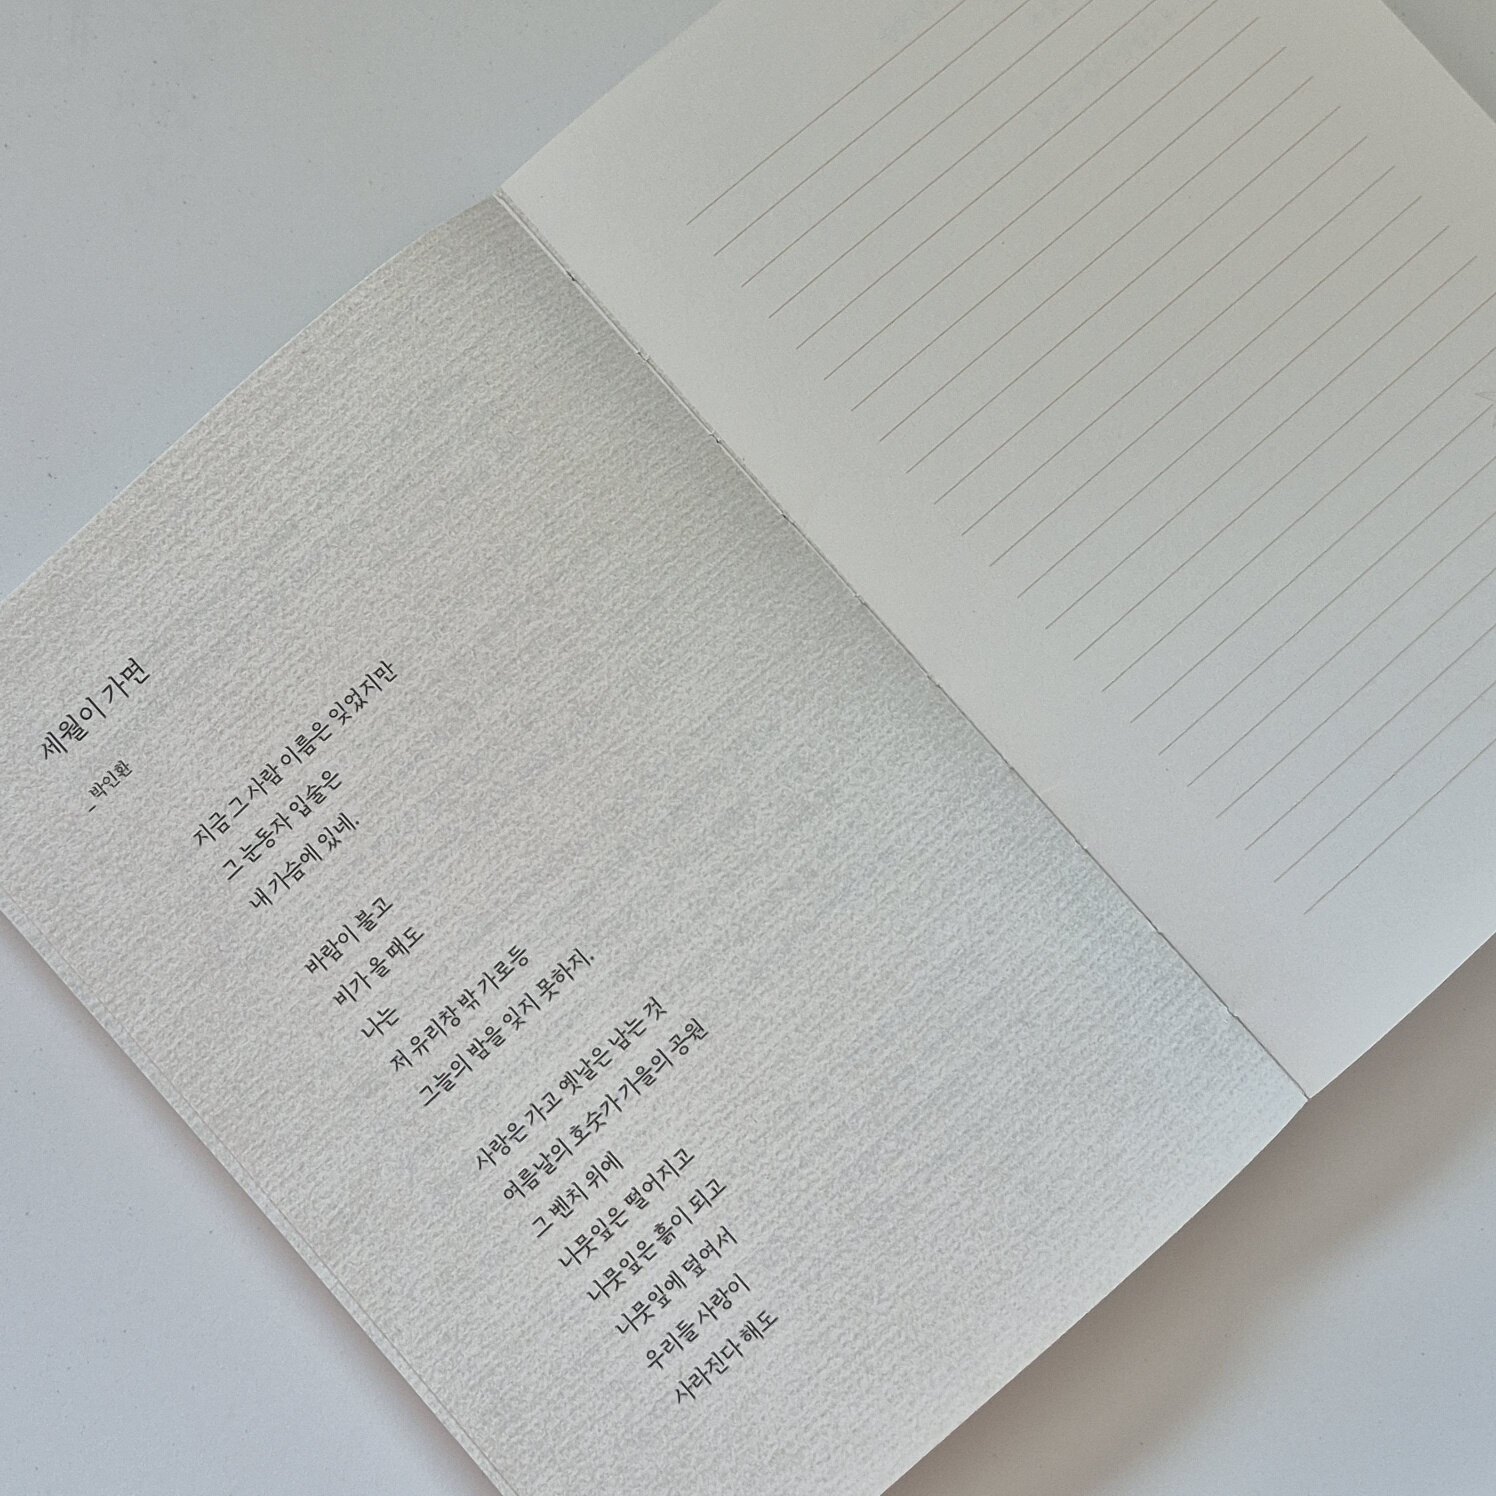 세월이 가면
_ 박인환
지금 그 사람 이름은 잊었지만
그 눈동자 입술은
내 가슴에 있네.
바람이 불고
비가 올 때도
나는
저 유리창 밖 가로등
그늘의 밤을 잊지 못하지.
사랑은 가고 옛날은 남는 것
여름날의 호숫가 가을의 공원
그 벤치 위에
나뭇잎은 떨어지고
나뭇잎은 흙이 되고
나뭇잎에 덮여서
우리들 사랑이
사라진다 해도